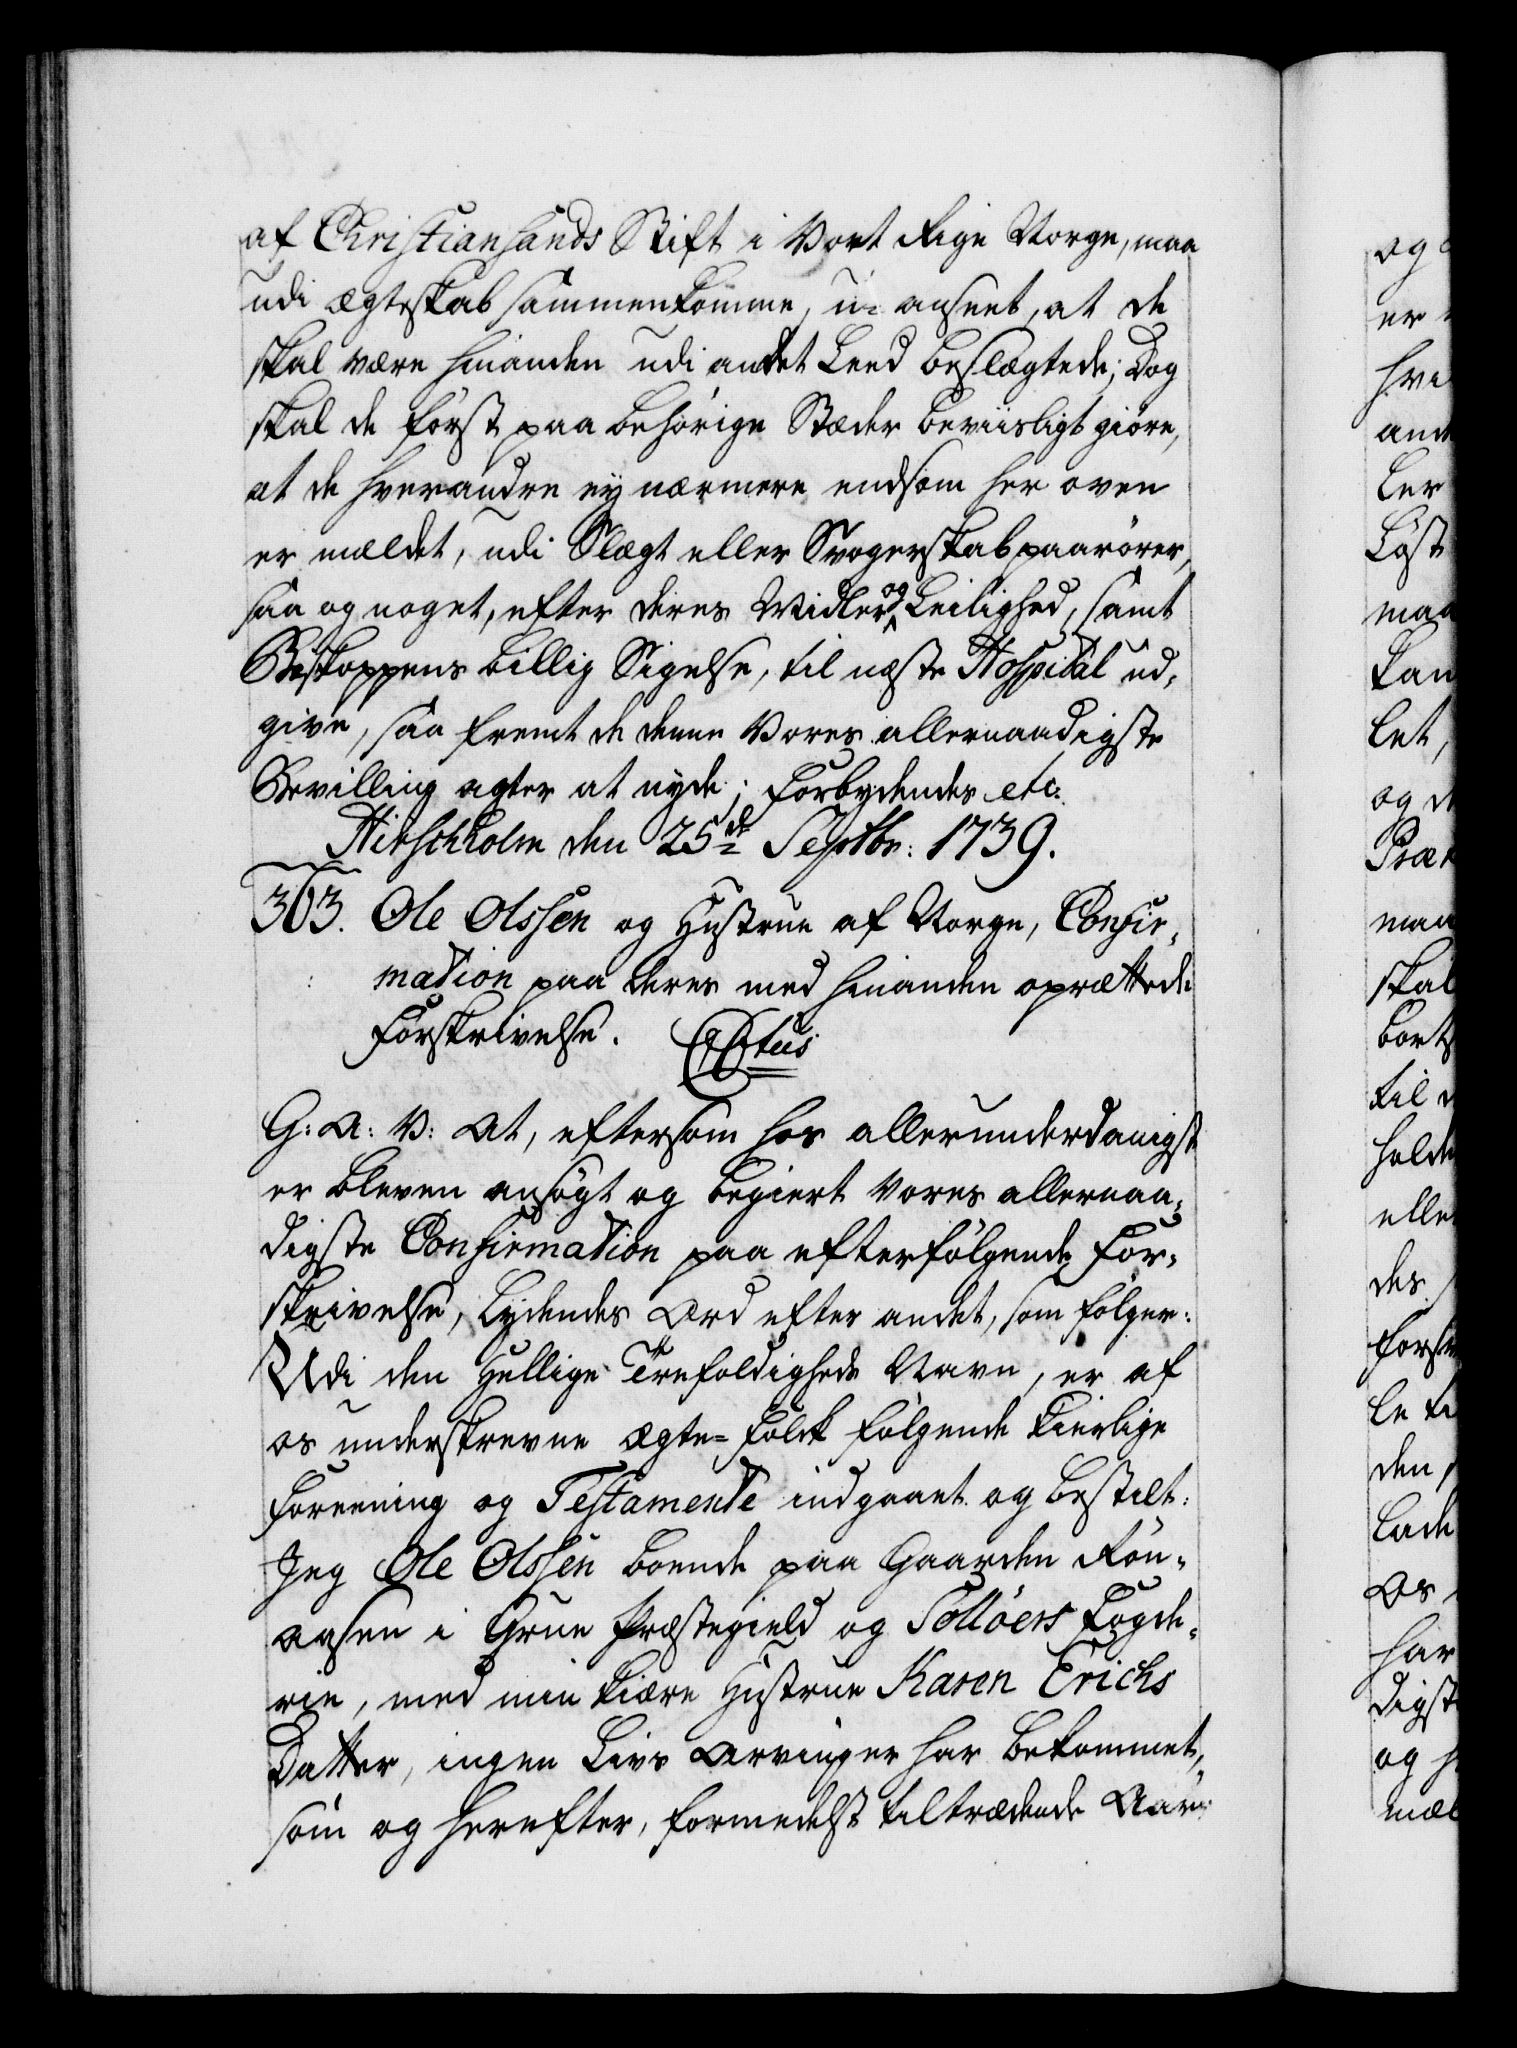 af Christiansands Stift i Vort Rige Norge, maa
udi Ægteskab sammenkomme, u-anseet, at de
skal være hinanden udi andet Leed beslægtede; Dog
skal de først paa behørige Stæder beviisligt giøre,
at de hverandre ey nærmere endsom her oven
er meldet, udi Slægt eller Svogerskab paarører,
saa og noget, efter deres Midler og Leilighed, samt
Biskoppens billig Sigelse, til næste Hospital ud-
give, saa fremt de denne Vores allernaadigste
Bevilling agter at nyde; Forbydendes etc:
Hirschholm den 25de Septbr: 1739.
363. Ole Olssen og Hustrue af Norge, Confir-
mation paa deres med hinanden oprættede
Forskrivelse.
G: A: V: At, eftersom hos allerunderdanigst
er bleven ansøgt og begiert Vores allernaa-
digste Confirmation paa efterfølgende For-
skrivelse, lydendes Ord efter andet, som følger:
Udi den Hellige Trefoldigheds Navn, er af
os underskrevne Ægte-Folck følgende kierlige
Foreening og Testamente indgaaet og bestilt:
Jeg Ole Olssen boende paa Gaarden Røn-
aasen i Grue Præstegield og Solløers Fogde-
rie, med min kiære Hustrue Karen Erichs
Datter, ingen Livs Arvinger har bekommet,
som og herefter, formedelst tiltrædende Aar